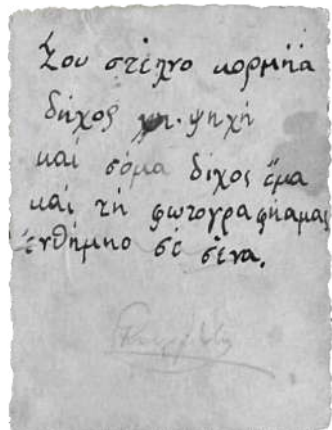 Σου στέλνο κορμήα
δήχος ψηχή
καί σόμα δίχος έμα
καί τή φωτογραφήαμας
ενθήμηο σέ σένα.